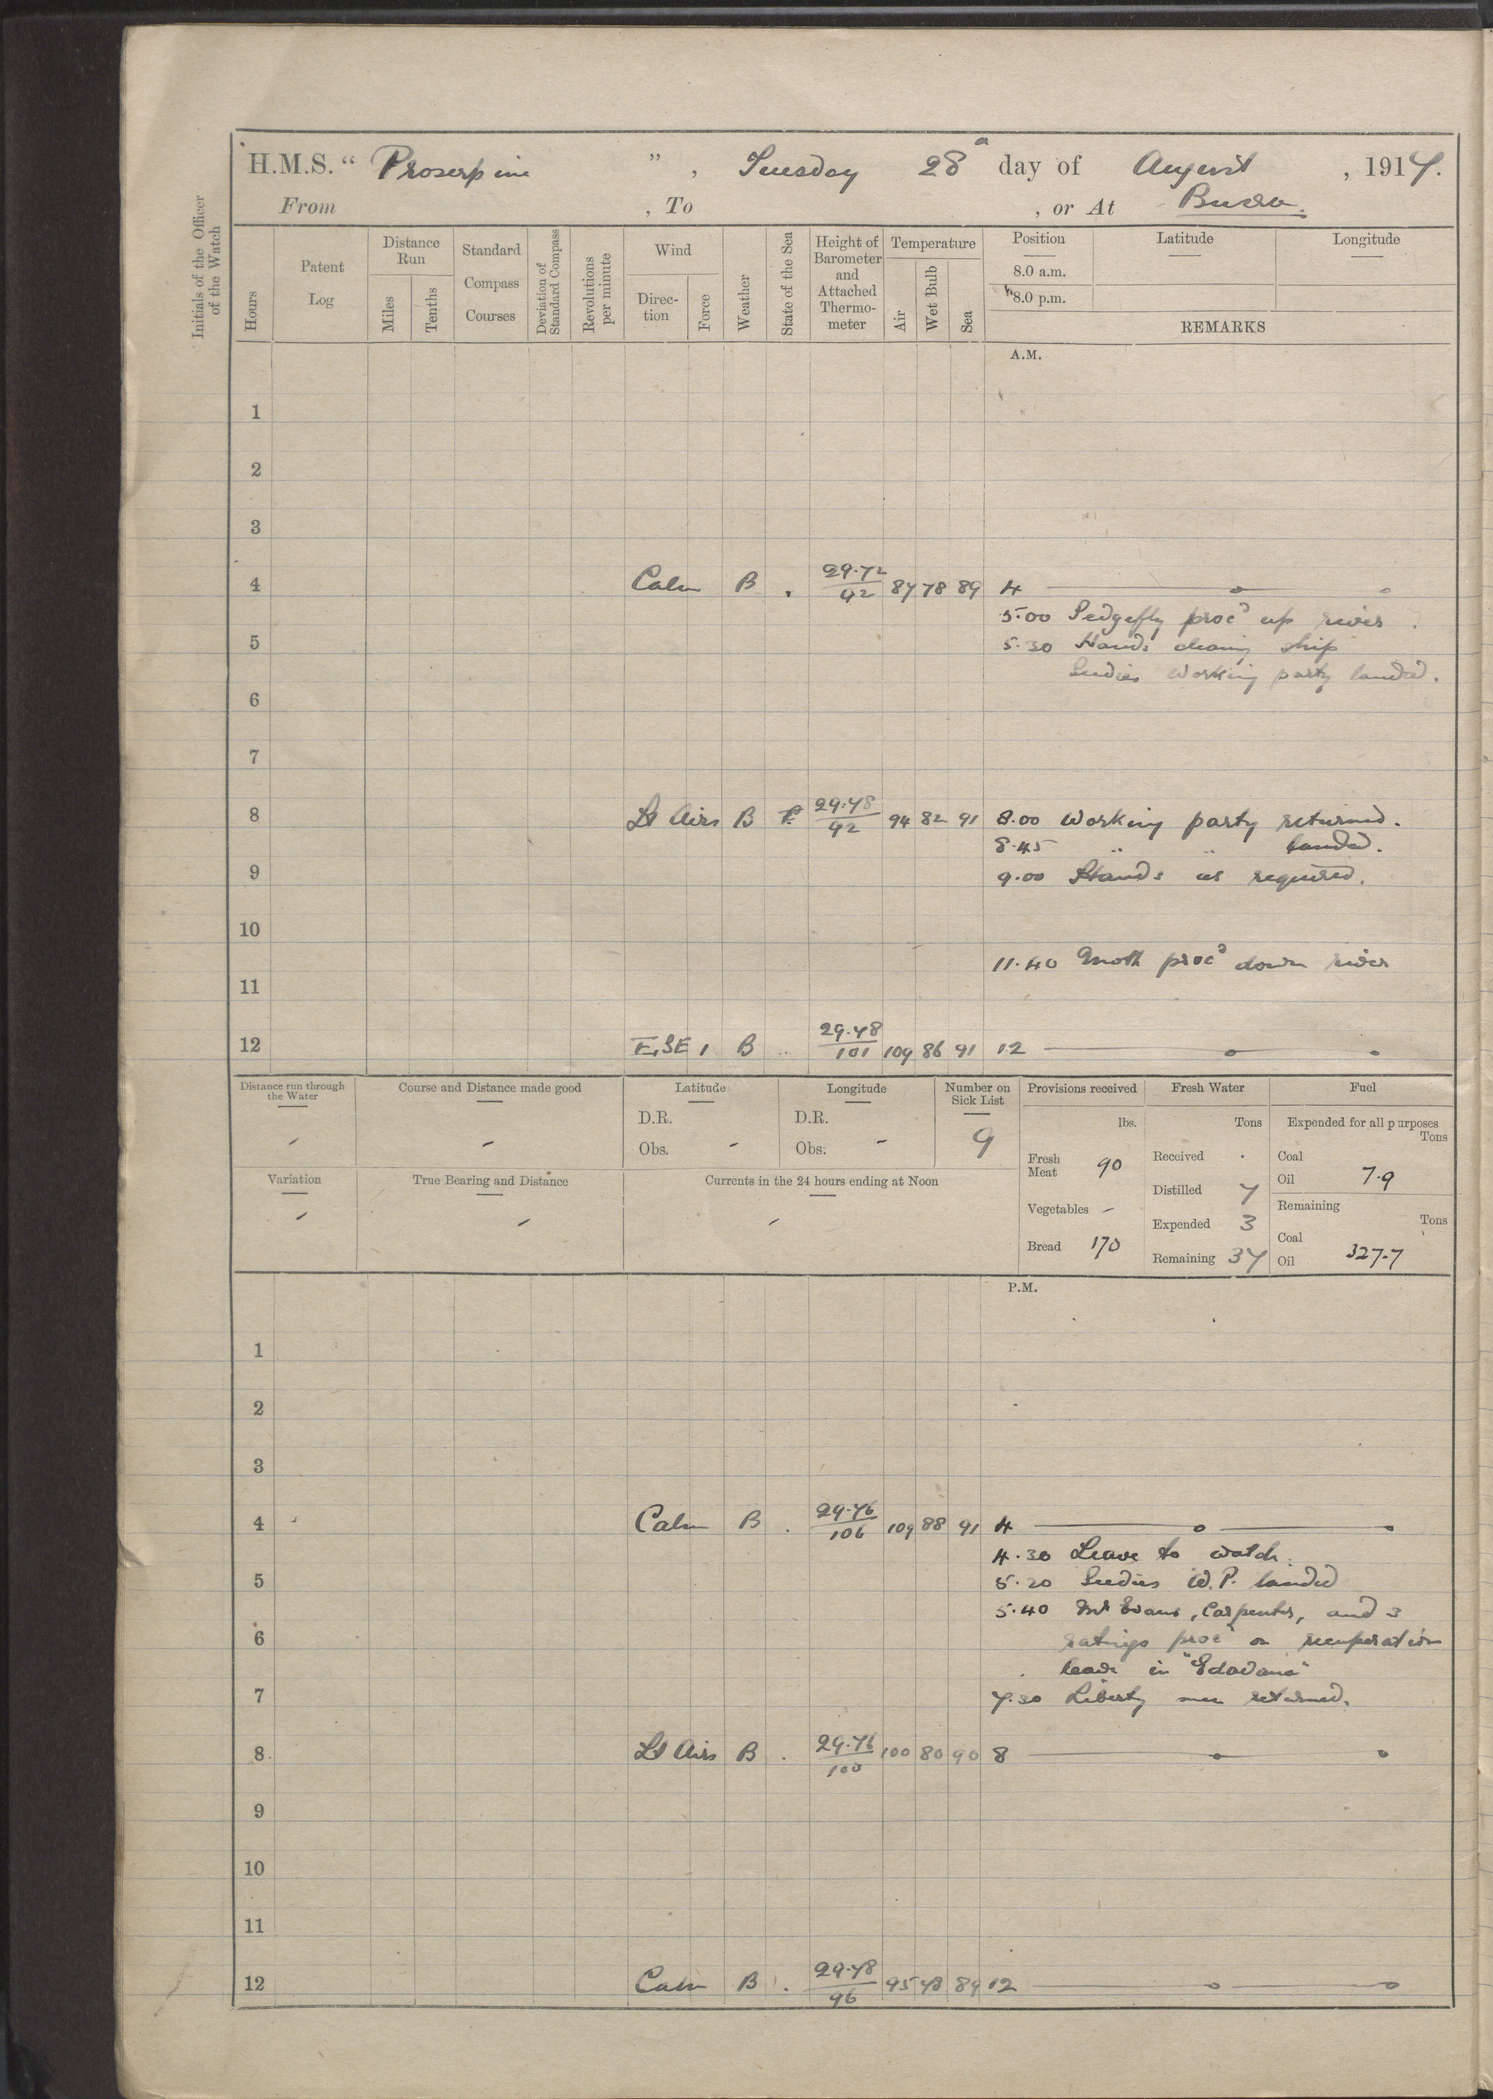 H.M.S. “ Proserpine ”, Tuesday 28th day of August, 1917.
From , To , or At Busra.
Initials of the Officer of the Watch
Hours
Patent Log
Distance Run
Miles
Tenths
Standard Compass Courses
Deviation of Standard Compass
Revolutions per minute
Wind
Direc-tion
Force
Weather
State of the Sea
Height of Barometer and Attached Thermo-meter
Temperature
Air
Wet Bulb
Sea
Position
Latitude
Longitude
8.0 a.m.
8.0 p.m.
REMARKS
A.M.
1
2
3
4 Calm B 29.72/92 87 78 89 4
5.00 Sedgefly procd up river.
5 5.30 Hands cleaning ship
Seedies working party landed.
6
7
8 Lt Airs B 29.78/92 94 82 91 8.00 Working party returned.
8.45 " " landed.
9 9.00 Hands as required.
10
11.40 Moth procd down river
11
12 E,SE 1 B 29.78/101 109 86 91 12
Distance run through the Water
Course and Distance made good
Latitude
D.R.
Obs. -
Longitude
D.R.
Obs. -
Number on Sick List
9
Provisions received
lbs.
Fresh Meat 90
Vegetables -
Bread 170
Fresh Water
Tons
Received .
Distilled 7
Expended 3
Remaining 37
Fuel
Expended for all purposes
Tons
Coal
Oil 7.9
Remaining
Tons
Coal
Oil 327.7
Variation
True Bearing and Distance
Currents in the 24 hours ending at Noon
P.M.
1
2
3
4 Calm B . 29.76/106 109 88 91 4
4.30 Leave to watch.
5 5.20 Seedies W.P. landed
5.40 Mr Evans, Carpenter, and 3
6 ratings procd on recuperation
leave in "Edavana"
7 7.30 Liberty men returned.
8 Lt Airs B . 29.76/100 100 80 90 8
9
10
11
12 Calm B . 29.78/96 95 78 89 12